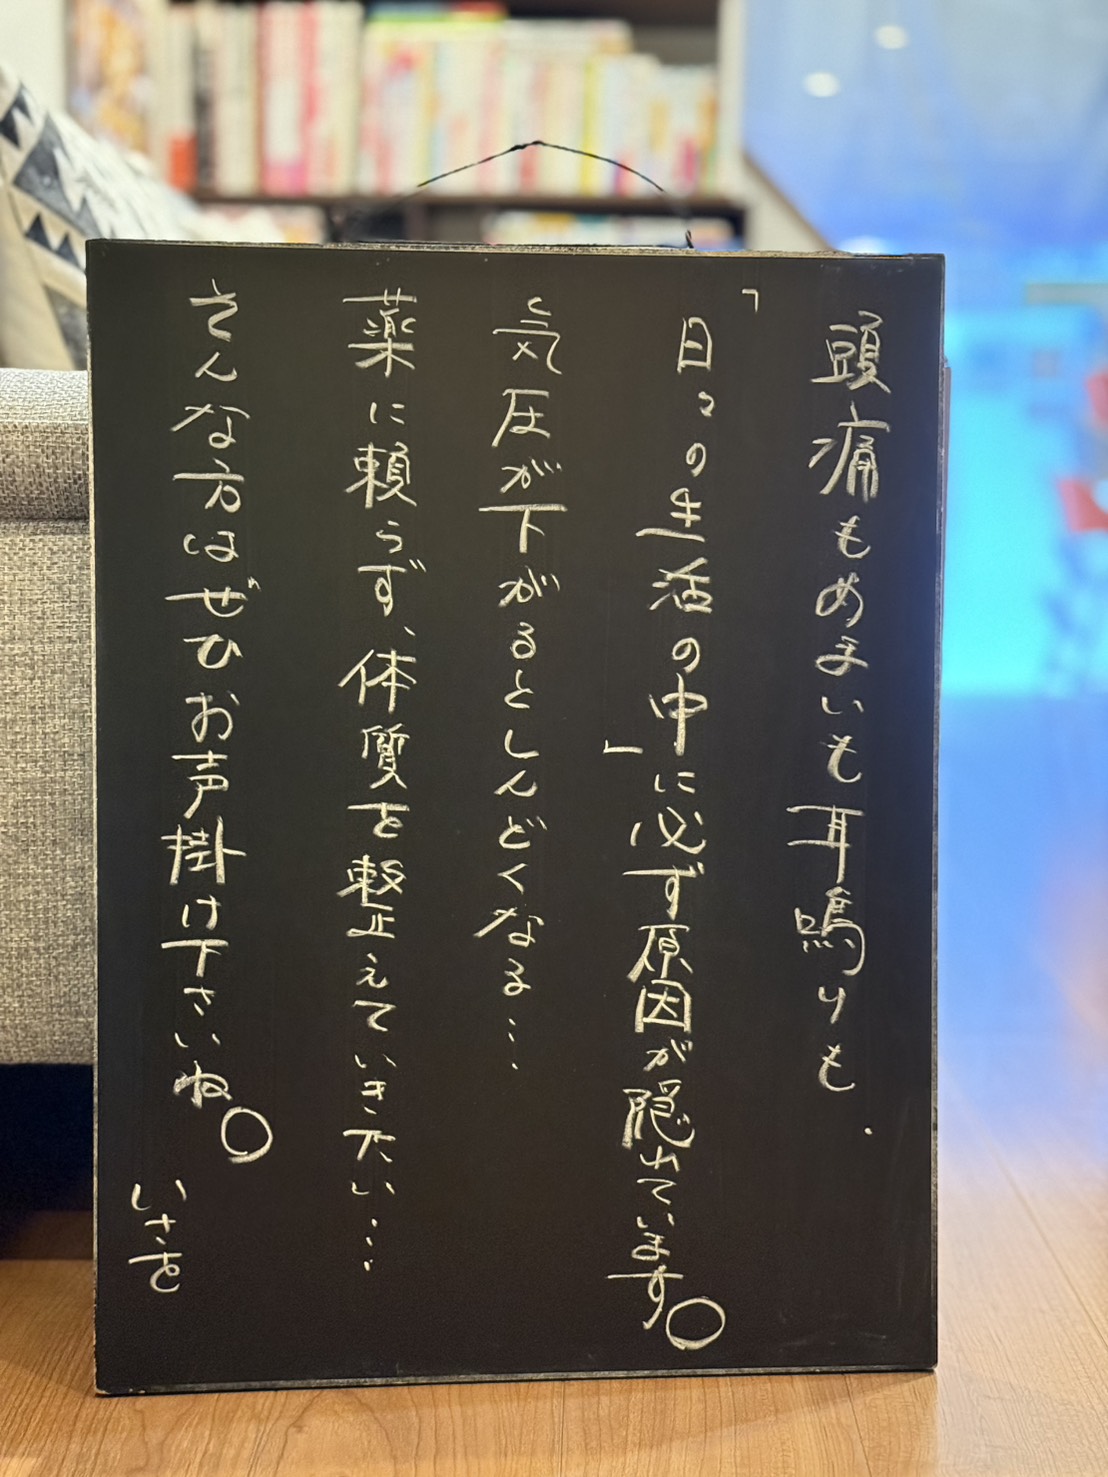 頭痛もめまいも耳鳴りも.
「日々の生活の中」に必ず原因が隠れています。
気圧が下がるとしんどくなる…
薬に頼らず、体質を整えていきたい…
そんな方はぜひお声掛け下さいね。
いさを